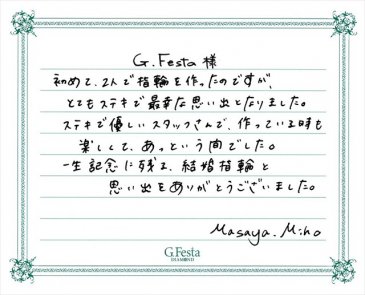 G.Festa 様
初めて、2人で指輪を作ったのですが、
とてもステキで最幸な思い出となりました。
ステキで優しいスタッフさんで、作っている時も
楽しくて、あっという間でした。
一生記念に残る、結婚指輪と
思い出をありがとうございました。
Masaya. Miho
G.Festa
DIAMOND